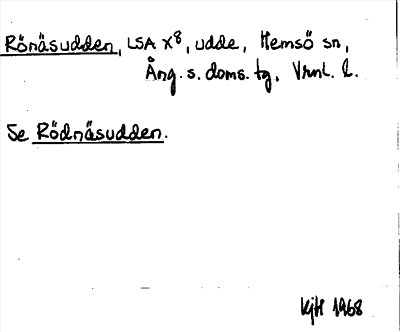 Rönäsudden, LSA X8, udde, Hemsö sn,
Ång. s. doms. tg, Vrnl. l.
Se Rödnäsudden.
KjH 1968